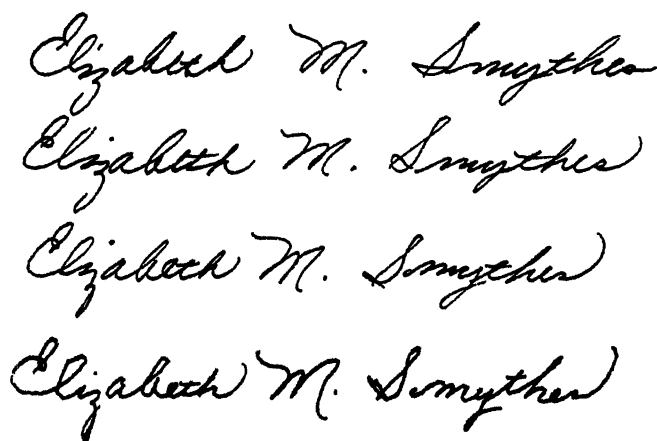 Elizabeth M. Smythes
Elizabeth M. Smythes
Elizabeth M. Smythes
Elizabeth M. Smythes